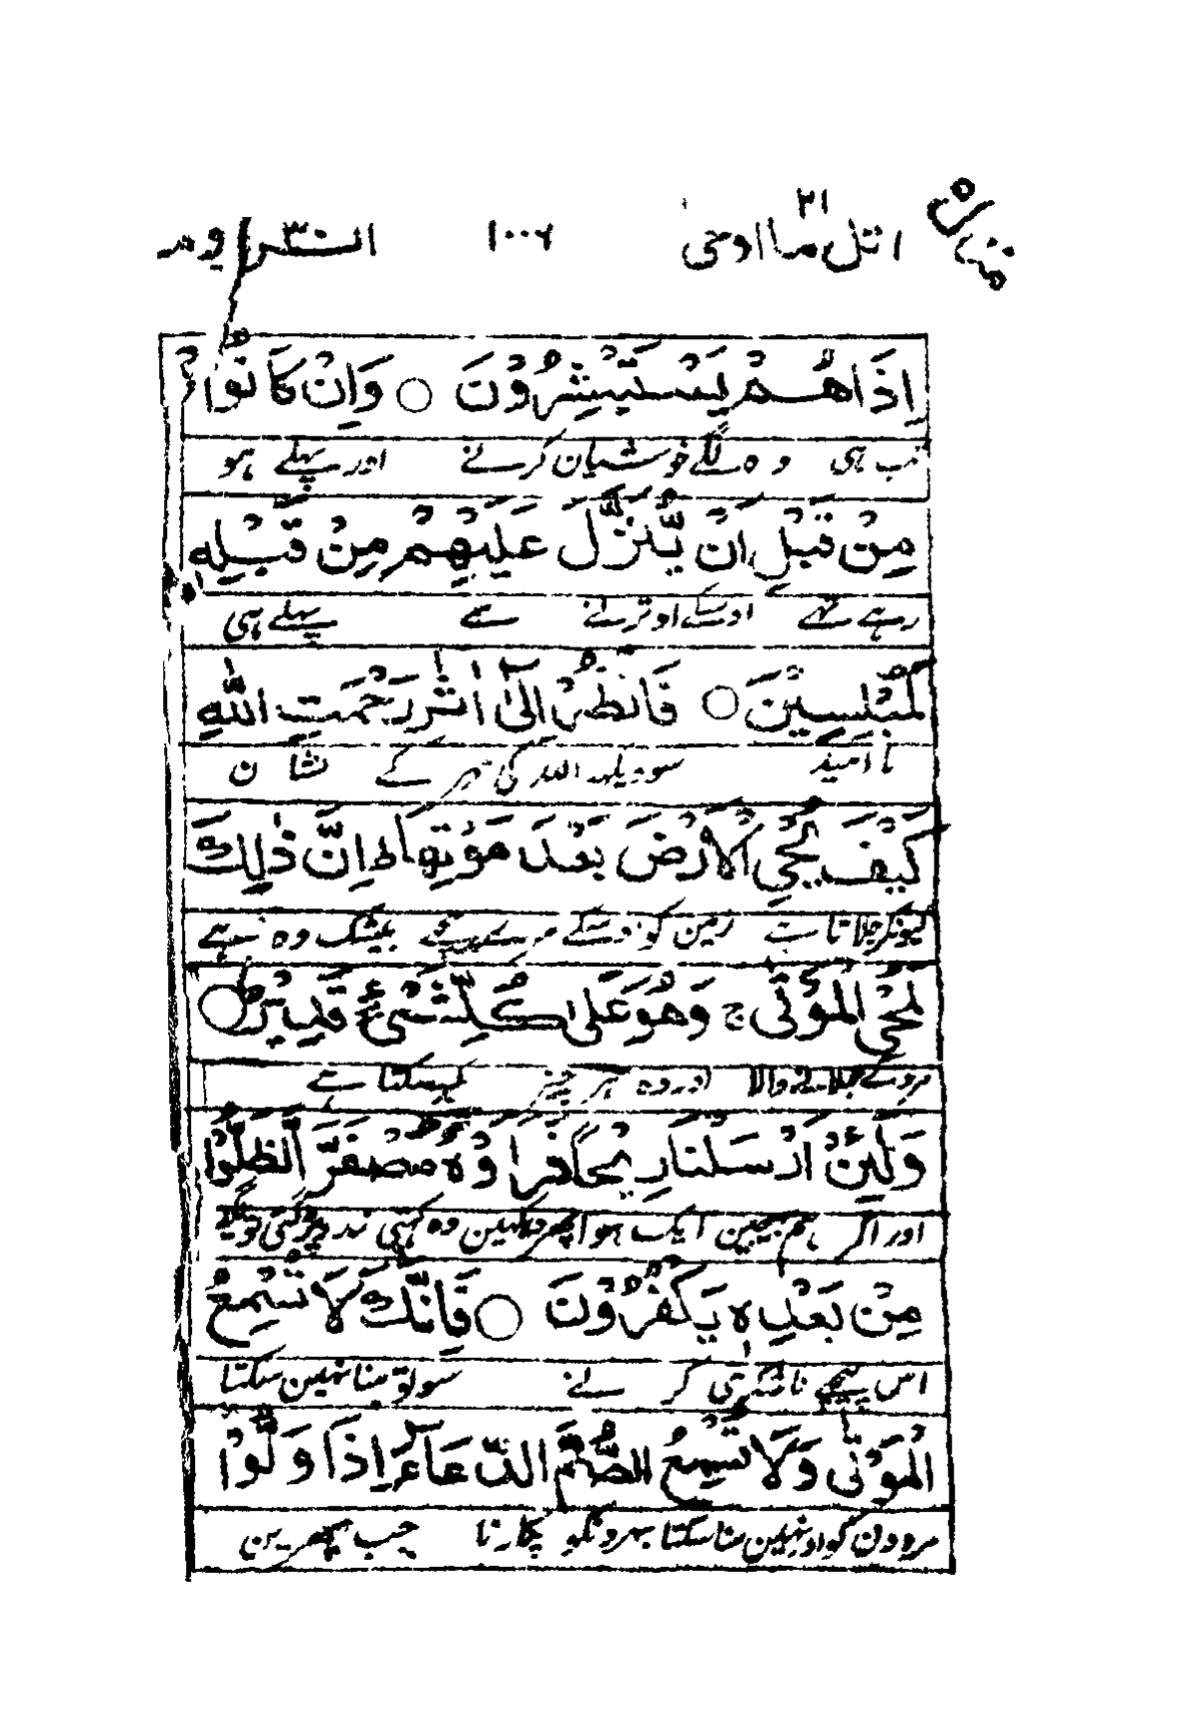 منزل ۵
اتل ما اوحی ۲۱ ۱۰۰۶ الروم ۳۰
اِذَا هُمْ يَسْتَبْشِرُوْنَ ○ وَاِنْ كَانُوْا
تب ہی وہ لگے خوشیان کرنے اور پہلے ہو
مِنْ قَبْلِ اَنْ يُّنَزَّلَ عَلَيْهِمْ مِنْ قَبْلِهٖ
رہے تھے اوسکے اوترنے سے پہلے ہی
لَمُبْلِسِيْنَ ○ فَانْظُرْ اِلٰٓى اٰثٰرِ رَحْمَتِ اللّٰهِ
نا امید سو دیکھہ اللہ کی مہر کے نشان
كَيْفَ يُحْيِ الْاَرْضَ بَعْدَ مَوْتِهَا ط اِنَّ ذٰلِكَ
کیونکر جلاتا ہے زمین کو اوسکے مرے پیچھے بیشک وہ ہے
لَمُحْيِ الْمَوْتٰى ج وَهُوَ عَلٰى كُلِّ شَىْءٍ قَدِيْرٌ ○
مردے جلانے والا اور وہ ہر چیز کرسکتا ہے
وَلَئِنْ اَرْسَلْنَا رِيْحًا فَرَاَوْهُ مُصْفَرًّا لَّظَلُّوْا
اور اگر ہم بھیجین ایک ہوا پھر دیکھین وہ کھیتی زرد پڑ گئی تو لگے
مِنْ بَعْدِهٖ يَكْفُرُوْنَ ○ فَاِنَّكَ لَا تُسْمِعُ
اس پیچھے ناشکری کرنے سو تو سنا نہین سکتا
الْمَوْتٰى وَلَا تُسْمِعُ الصُّمَّ الدُّعَآءَ اِذَا وَلَّوْا
مردون کو اور نہین سنا سکتا بہرونکو پکارنا جب پھرین